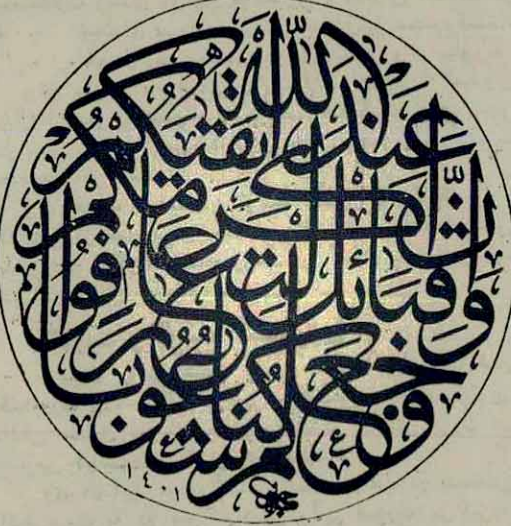 وجعلناكم شعوبا
وقبائل لتعارفوا
إن أكرمكم
عند الله أتقيكم
١٤٠١